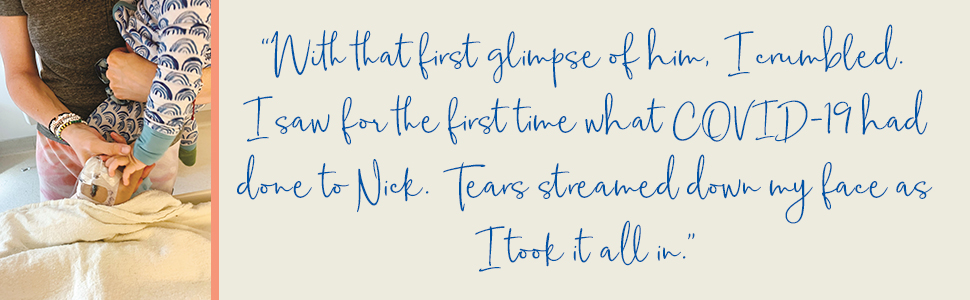 “With that first glimpse of him, I crumbled.
I saw for the first time what COVID-19 had
done to Nick. Tears streamed down my face as
I took it all in.”